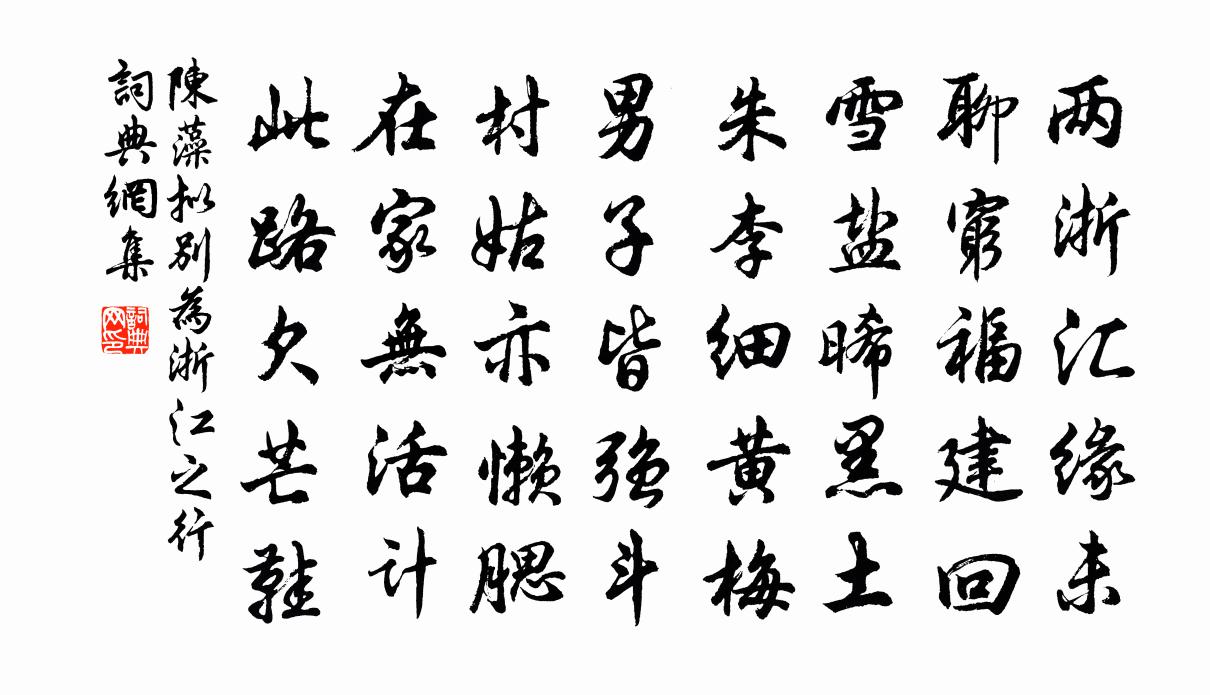 两浙江缘未
聊穷福建回
雪盐晞黑土
朱李细黄梅
男子皆强斗
村姑亦懒腮
在家無活计
此路欠芒鞋
陳藻拟别為浙江之行
詞典網集
詞典网印